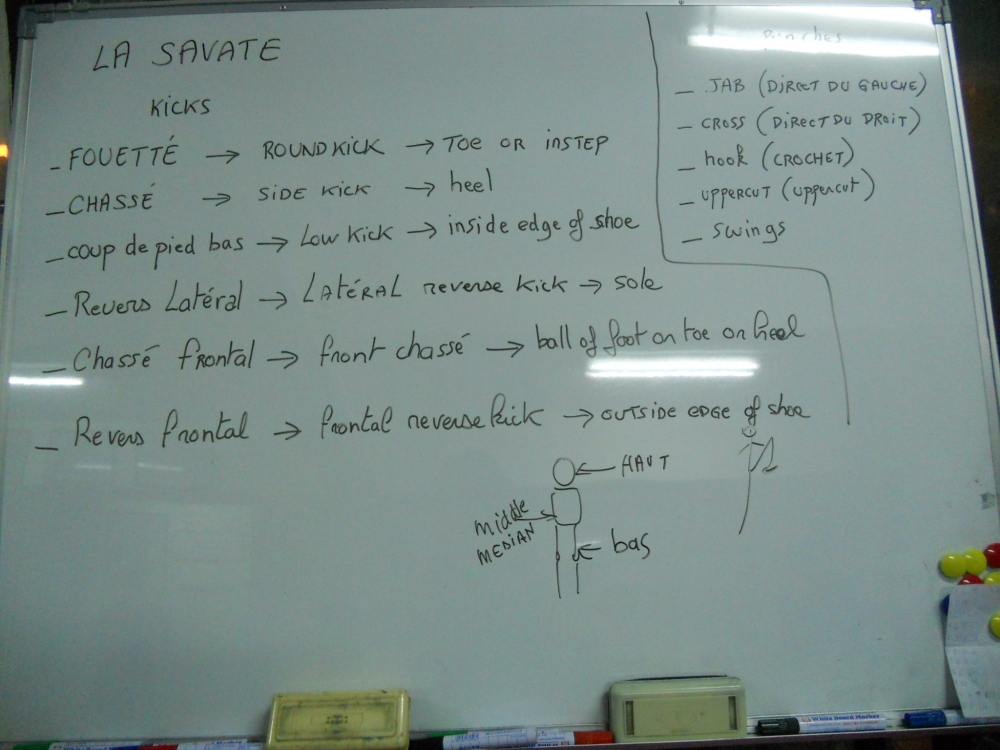 LA SAVATE
KICKS
_ FOUETTÉ → ROUNDKICK → TOE OR INSTEP
_ CHASSÉ → SIDE KICK → heel
_ coup de pied bas → Low KICK → inside edge of shoe
_ Revers Latéral → LATÉRAL reverse KICK → sole
_ Chassé frontal → front chassé → ball of foot or toe or heel
_ Revers frontal → frontal reverse kick → OUTSIDE EDGE of shoe
Punches
_ JAB (DIRECT DU GAUCHE)
_ CROSS (DIRECT DU DROIT)
_ hook (CROCHET)
_ UPPERCUT (Uppercut)
_ swings
HAUT
middle
MEDIAN
bas
White Board Marker